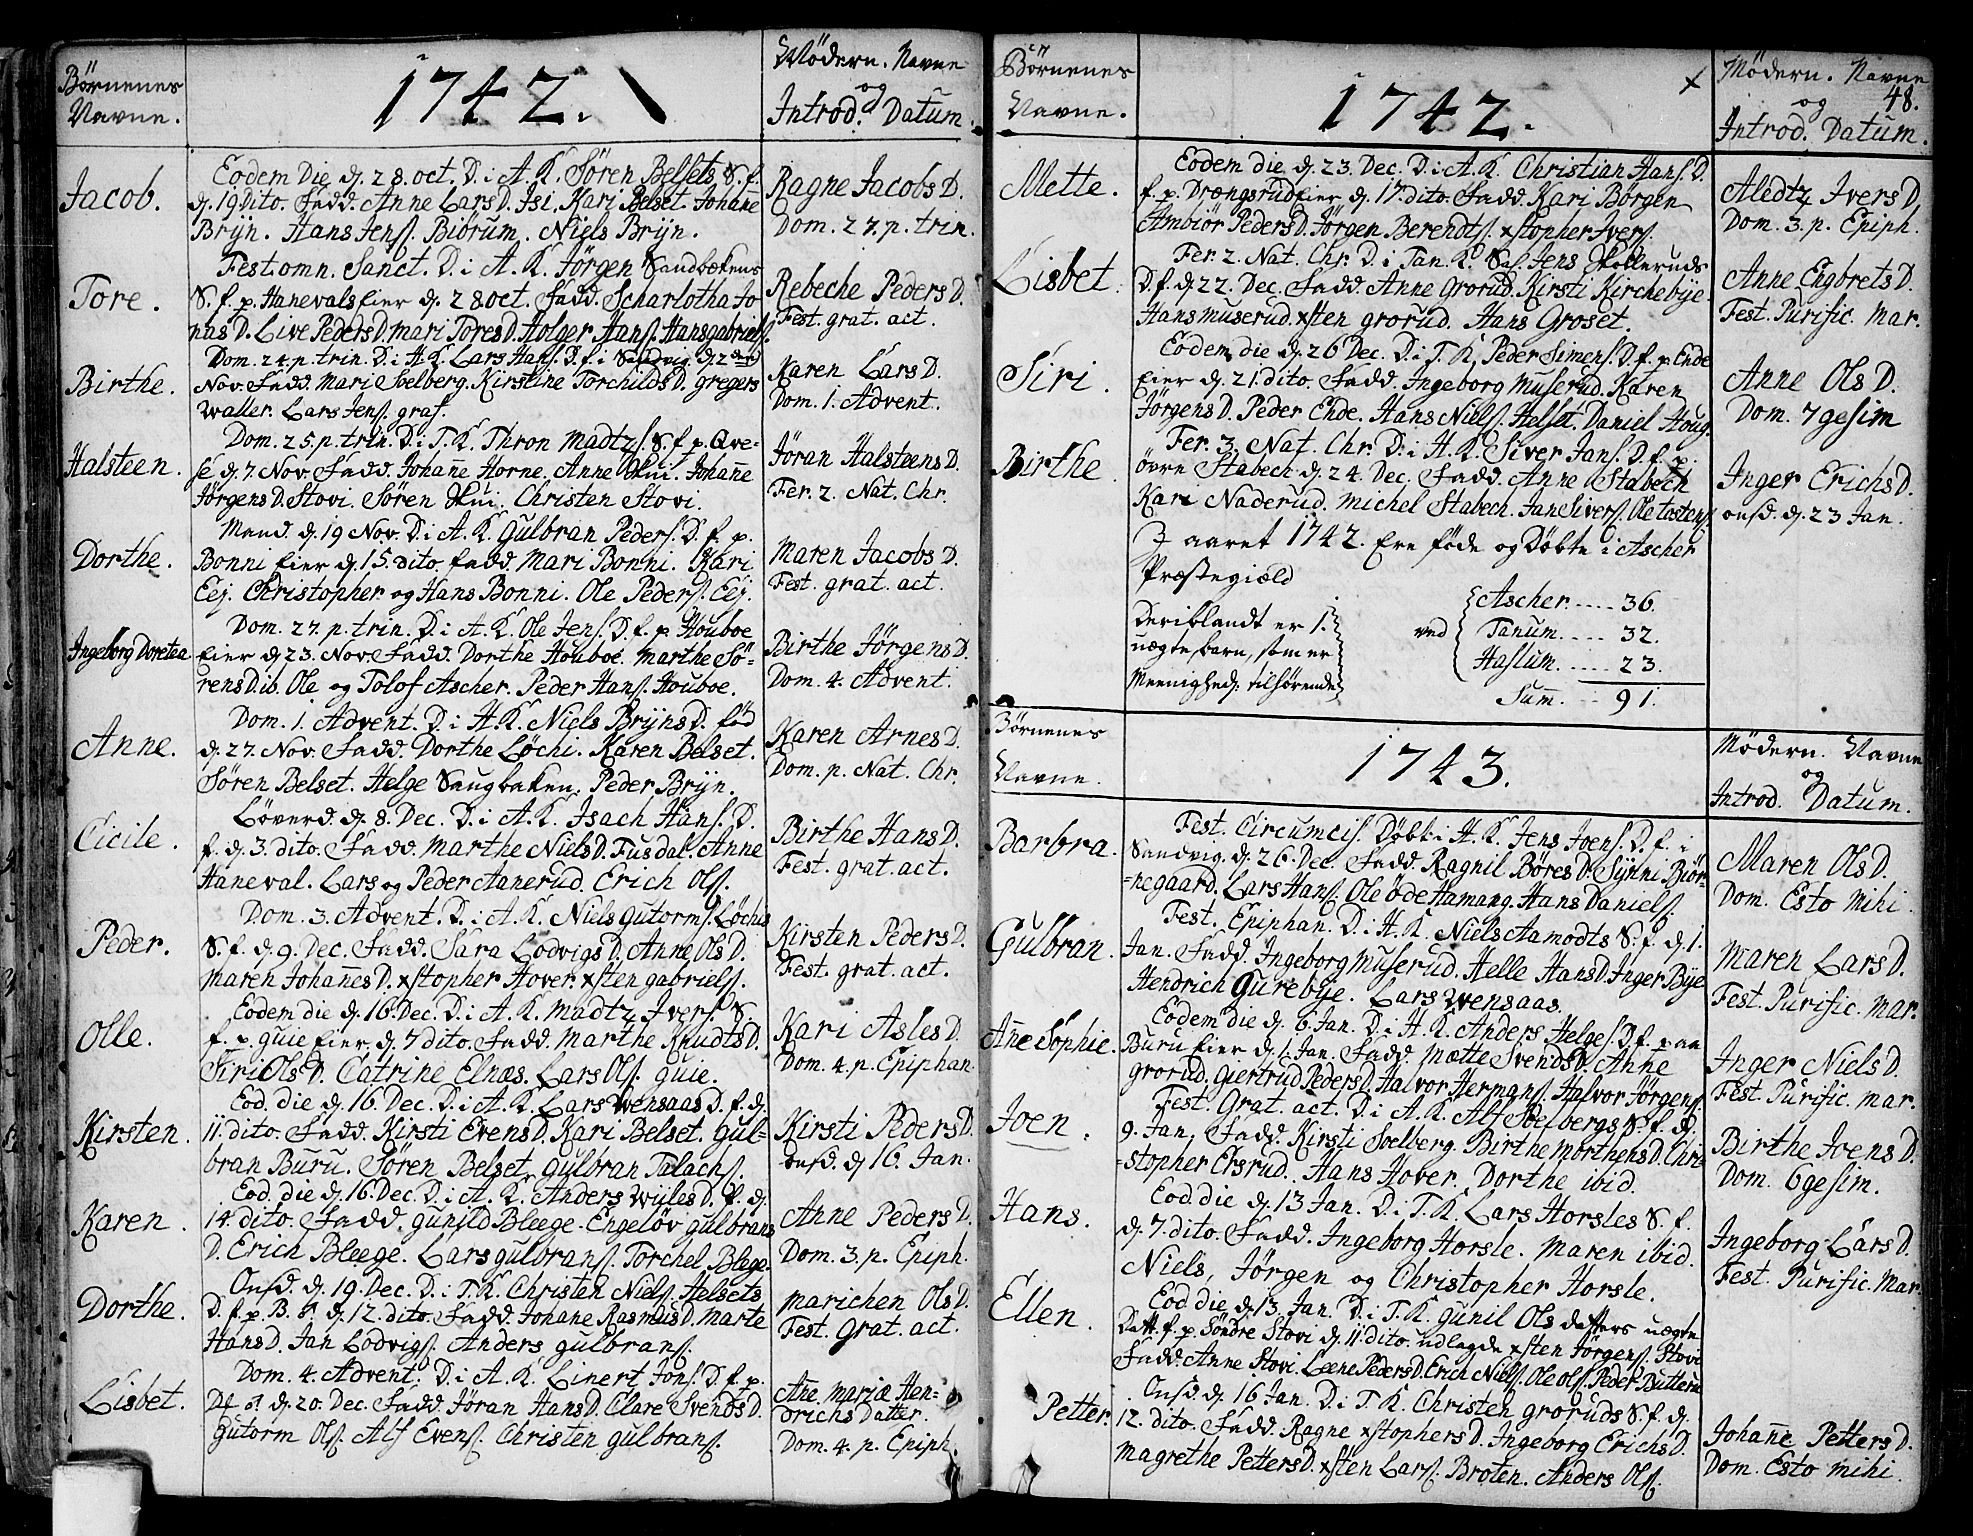 Börnenes
Navne.
1742.
Mödern. Navne
og
Introd. Datum.
Jacob.
Eodem Die d. 28. oct. D. i A. K. Sören Belsets S. f.
d. 19 Dito. Fadd. Anne Lars D. Isi. Kari Belset. Johañe
Brÿn. Hans Jens. Biörum. Niels Brÿn.
Ragne Jacobs D.
Dom. 27. p. trin.
Tore.
Fest. omn. Sanct. D. i A. K. Jörgen Sandbækens
S. f. p. Hanevals Eier d. 28 oct. Fadd. Scharlotha Jo
nas D. Live Peders D. mari Tores D. Holger Hans. Hans gabriels.
Rebeche Peders D.
Fest. grat. act.
Birthe.
Dom. 24. p. trin. D. i H. K. Lars Hans. D. f. i Sandvig. d. 2den
Nov. Fadd. Mari Soelberg. Kirstine Torchilds D. gregers
Waller. Lars Jens. graf.
Karen Lars D.
Dom. 1. Advent.
Halsteen.
Dom. 25. p. trin. D. i T. K. Thron Madtzs S. f. p. Qve-
se d. 7 Nov. Fadd. Johañe Horne. Anne Skui. Johañe
Jörgens D. Stovi. Sören Skui. Christen Stovi.
Jöran Halsteens D.
Fer. 2. Nat. Chr.
Dorthe.
Mand. d. 19 Nov. D. i A. K. Gulbran Peders. D. f. p.
Bonni Eier d. 15. dito. Fadd. Mari Bonni. Kari
Eej. Christopher og Hans Bonni. Ole Peders. Eej.
Maren Jacobs D.
Fest. grat. act.
Ingeborg Doretea
Dom. 27. p. trin. D. i A. K. Ole Jens. D. f. p. Houboe
Eier d. 23. Nov. Fadd. Dorthe Houboe. Marthe Sö=
rens D. ib. Ole og Tolof Ascher. Peder Hans. Houboe.
Birthe Jörgens D.
Dom. 4. Advent.
Anne.
Dom. 1. Advent. D. i H. K. Niels Brÿns D. föd
d. 27. Nov. Fadd. Dorthe Löchi. Karen Belset.
Sören Belset. Helge Saugbaken. Peder Brÿn.
Karen Arnes D.
Dom. p. Nat. Chr.
Cicile.
Löverd. d. 8. Dec. D. i A. K. Isach Hans. D.
f. d. 3. dito. Fadd. Marthe Niels D. Fusdal. Anne
Haneval. Lars og Peder Aanerud. Erich Ols.
Birthe Hans D.
Fest. grat. act.
Peder.
Dom. 3. Advent. D. i A. K. Niels Gutorms. Löchis
S. f. d. 9. Dec. Fadd. Sara Lodvigs D. Anne Ols D.
Maren Johañes D. xstopher Hover. xsten gabriels.
Kirsten Peders D.
Fest. grat. act.
Olle.
Eodem die d. 16. Dec. D. i A. K. Madtz Ivers. S.
f. p. guie Eier. d. 7 dito. Fadd. Marthe Knudts D.
Siri Ols D. Catrine Elnæs. Lars Ols. guie.
Kari Asles D.
Dom. 4. p. Epiphan.
Kirsten.
Eod. die d. 16. Dec. D. i A. K. Lars Wensaas D. f. d.
11. dito. Fadd. Kirsti Evens D. Kari Belset. Gul=
bran Buru. Sören Belset, Gulbran Talachs.
Kirsti Peders D.
onsd. d. 16. Jan.
Karen.
Eod. die d. 16. Dec. D. i A. K. Anders Wÿles D. f. d.
14. dito. Fadd. Gunild Bleege. Engelöv gulbrans
D. Erich Bleege. Lars gulbrans. Torchel Blege.
Anne Peders D.
Dom. 3. p. Epiph.
Dorthe.
Onsd. d. 19. Dec. D. i T. K. Christen Niels. Helsets
D. f. p. B. d. 12. dito. Fadd. Johane Rasmus D. Marte
Hans D. Jan Lodvigs. Anders gulbrans.
Marichen Ols D.
Fest. Grat. act.
Lisbet.
Dom. 4. Advent. D. i A. K. Linert Jons. D. f. p.
d. 20. Dec. Fadd. Jöran Hans D. Clare Svends D.
Gutorm Ols. Alf Evens. Christen Gulbrans.
Añe Mariæ Hen=
drichs Datter.
Dom. 4. p. Epiph.
Börnenes
Navne.
1742.
x
Mödern. Navne
48.
og
Introd. Datum.
Mette.
Eodem die d. 23. Dec. D. i A. K. Christian Hans. D.
f. p. Drængsrud Eier d. 17. dito. Fadd. Kari Börgen
Ambiör Peders D. Jörgen Berendts. xstopher Ivers.
Aledtz Ivers D.
Dom. 3. p. Epiph.
Lisbet.
Fer. 2. Nat. Chr. D. i Tan. K. Sal. Jens Skolleruds
D. f. d. 22. Dec. Fadd. Anne Grorud. Kirsti Kirchebÿe.
Hans Muserud. xsten grorud. Hans Groset.
Anne Engbrets D.
Fest. Purific. Mar.
Siri.
Eodem die d. 26 Dec. D. i T. K. Peder Simens. D. f. p. Ende
Eier d. 21. dito. Fadd. Ingeborg Muserud. Karen
Jörgens D. Peder Ende. Hans Niels. Helset. Daniel Houg.
Anne Ols D.
Dom. 7gesim
Birthe.
Fer. 3. Nat. Chr. D. i H. K. Siver Jans. D. f. p.
övre Stabech d. 24 Dec. Fadd. Anne Stabech
Kari Naderud. Michel Stabech. Jan Sivers. Ole Tostens.
Inger Erichs D.
onsd. d. 23 Jan.
I aaret 1742. Ere föde og Döbte i Ascher
Præstegiæld
Deriblandt er 1.
uægte barn, som er
Meenighed: tilhörende
ved
Ascher .... 36.
Tanum .... 32.
Haslum .... 23.
Sum̄ ... 91.
Börnenes
Navne.
1743.
Mödern. Navne
og
Introd. Datum.
Barbra.
Fest. Circumcis. Döbt i H. K. Jens Joens. D. f. i
Sandvig. d. 26. Dec. Fadd. Ragnil Böres D. Sÿnni Biör=
=negaard. Lars Hans. Ole öde Hamang. Hans Daniels.
Maren Ols D.
Dom. Esto mihi.
Gulbran.
Fest. Epiphan. D. i H. K. Niels Aamodts S. f. d. 1.
Jan. Fadd. Ingeborg Muserud. Helle Hans D. Inger Bÿe
Hendrich Gurebÿe. Lars Wensaas.
Maren Lars D.
Fest. Purific. Mar.
Añe Sophie.
Eodem die d. 6. Jan. D. i H. K. Anders Helges. D. f. paa
Buru Eier d. 1. Jan. Fadd. Mætte Svends D. Anne
grorud. Giertrud Peders D. Halvor Hermans. Halvor Jörgens.
Inger Niels D.
Fest. Purific. Mar.
Joen.
Fest. Grat. act. D. i A. K. Alf Soelbergs S. f. d.
9. Jan. Fadd. Kirsti Soelberg. Birthe Morthens D. Chri
=stopher Ersrud. Hans Hover. Dorthe ibid.
Birthe Ivens D.
Dom. 6gesim.
Hans.
Eod die d. 13 Jan. D. i T. K. Lars Horsles S. f.
d. 7. dito. Fadd. Ingeborg Horsle. Maren ibid.
Niels, Jörgen og Christopher Horsle.
Ingeborg Lars D.
Fest. Purific. Mar.
Ellen.
Eod die d. 13. Jan. D. i T. K. Gunil Ols datters uægte
Datt. f. p. Söndre Stovi d. 11. dito. udlagde xsten Jörgens. Stovi
Fadd. Anne Stovi. Leene Peders D. Erich Niels. Ole Ols. Peder Butterud
Petter.
Onsd. d. 16 Jan. D. i T. K. Christen groruds S. f. d.
12. dito. Fadd. Ragne xstophers D. Ingeborg Erichs D.
Magrethe Petters D. xsten Lars. Broten. Anders Ols.
Johañe Petters D.
Dom. Esto mihi.